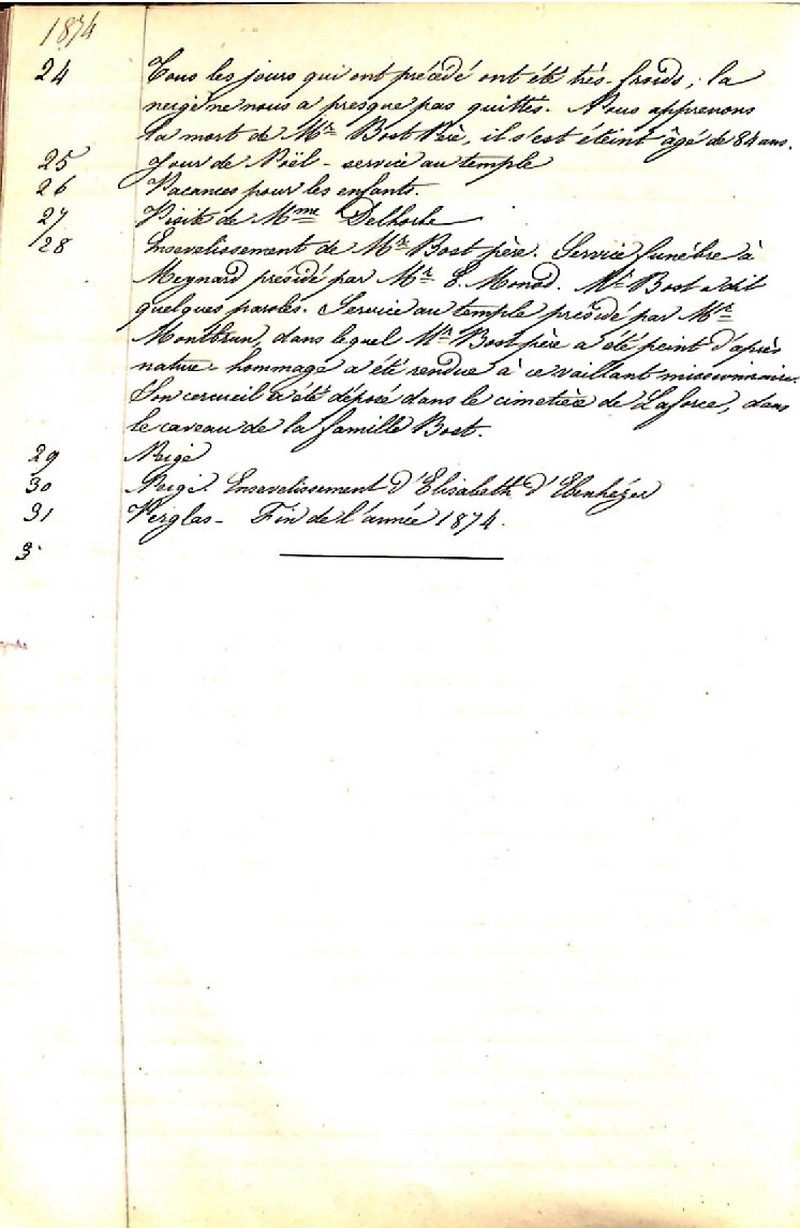 1874
24 Tous les jours qui ont précédé ont été très-froids; la
neige ne nous a presque pas quittés. Nous apprenons
la mort de Mr Bost Père, il s'est éteint âgé de 84 ans.
25 Jour de Noël - service au temple
26 Vacances pour les enfants.
27 Visite de Mme Delhorbe
28 Ensevelissement de Mr Bost père. Service funèbre à
Meynard présidé par Mr E. Monod. Mr Bost a dit
quelques paroles. Service au temple présidé par Mr
Montbrun, dans lequel Mr Bost père a été peint d'après
nature - hommage a été rendue à ce vaillant missionnaire.
Son cercueil a été déposé dans le cimetière de Laforce, dans
le caveau de la famille Bost.
29 Neige
30 Neige. Ensevelissement d'Elisabeth d'Ebenhézer
31 Verglas - Fin de l'année 1874.
3